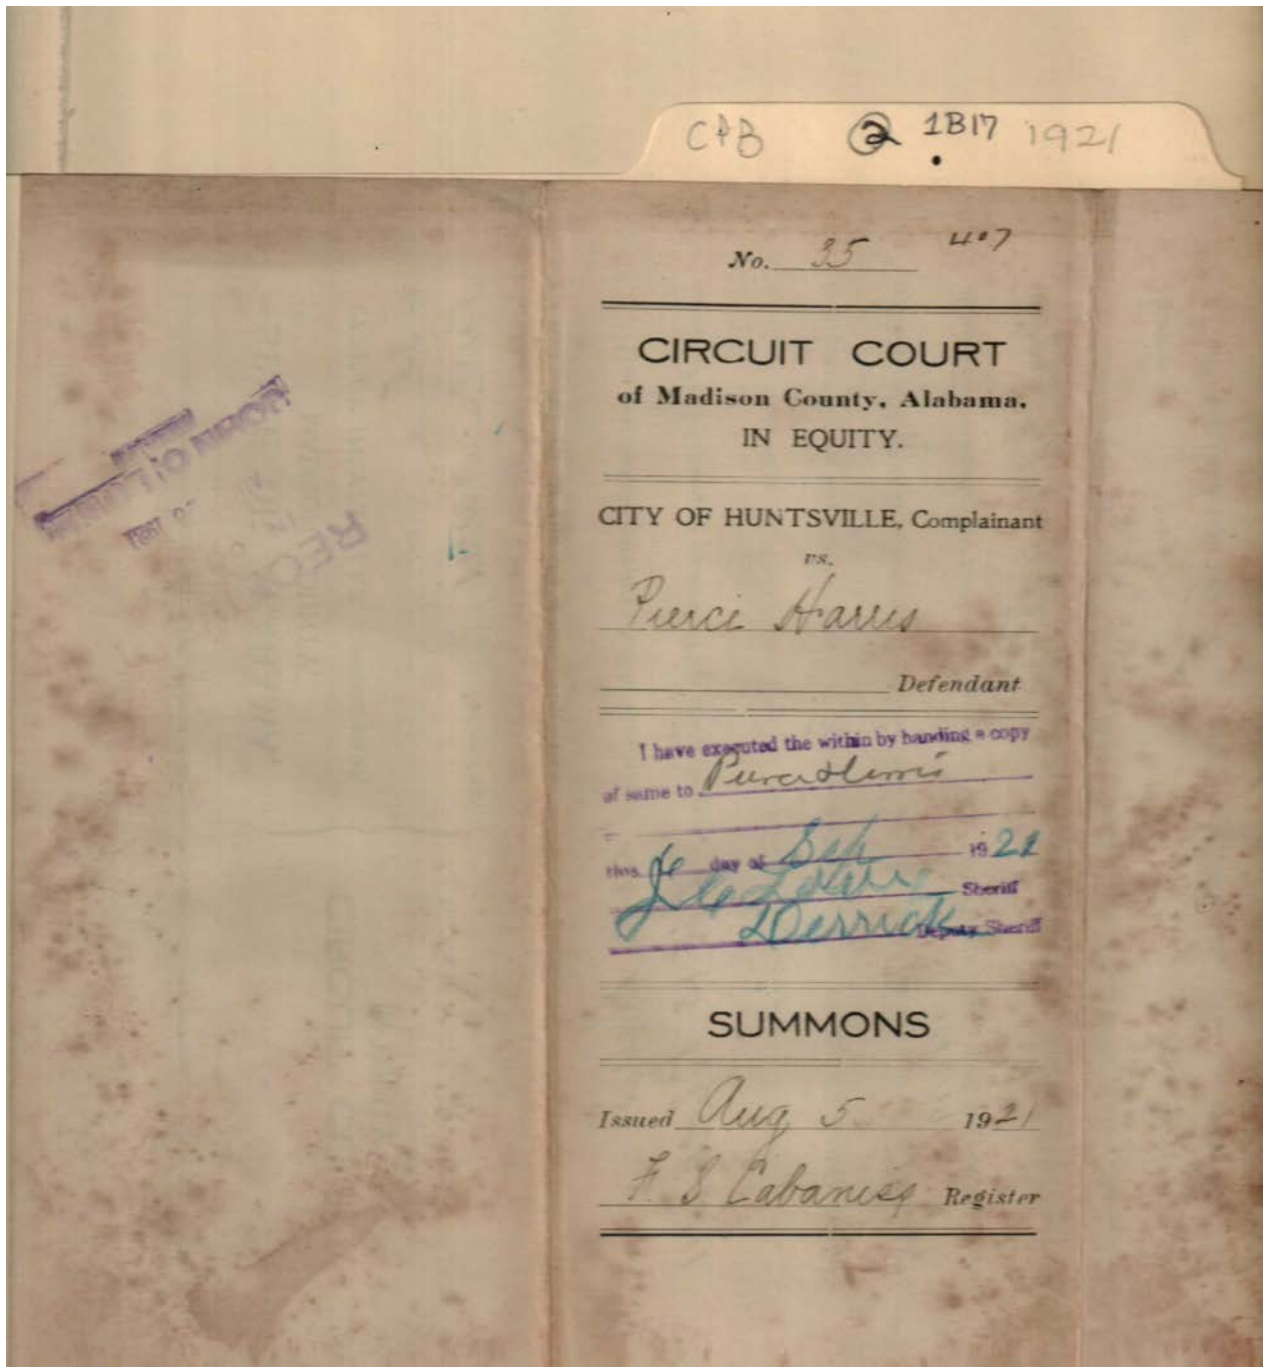 CPB 2 1B17 1921
No. 35 407
CIRCUIT COURT
of Madison County, Alabama.
IN EQUITY.
CITY OF HUNTSVILLE, Complainant
vs.
Pierce Harris
Defendant
I have executed the within by handing a copy
of same to Pierce Harris
this 6 day of Sep 1921
Sheriff
Derrick Deputy Sheriff
SUMMONS
Issued Aug 5 1921
F. S. Cabaniss Register